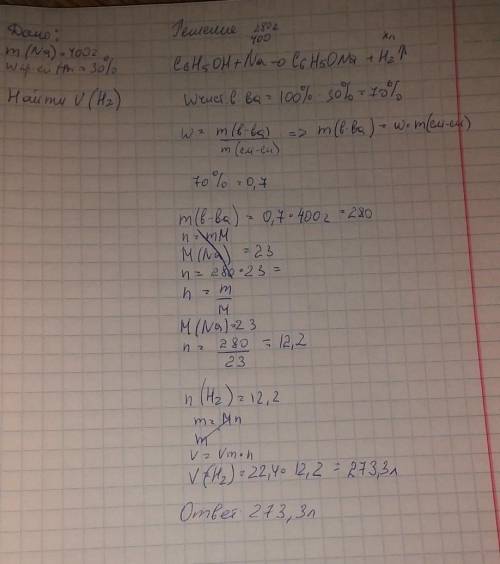 Дано:
m(Na) = 400г
w пр. см Hm = 30%
Найти V(H2)
Решение
280г
400
xл
C6H5OH + Na → C6H5ONa + H2↑
wчист. в ва = 100% - 30% = 70%
w = m(в-ва) / m(см-си) => m(в-ва) = w • m(см-си)
70% = 0,7
m(в-ва) = 0,7 • 400г = 280
n = mM
M(Na) = 23
n = 280 • 23 =
n = m / M
M(Na) = 23
n = 280 / 23 = 12,2
n(H2) = 12,2
m = Mn
m
V = Vm • n
V(H2) = 22,4 • 12,2 = 273,3л
Ответ 273,3л